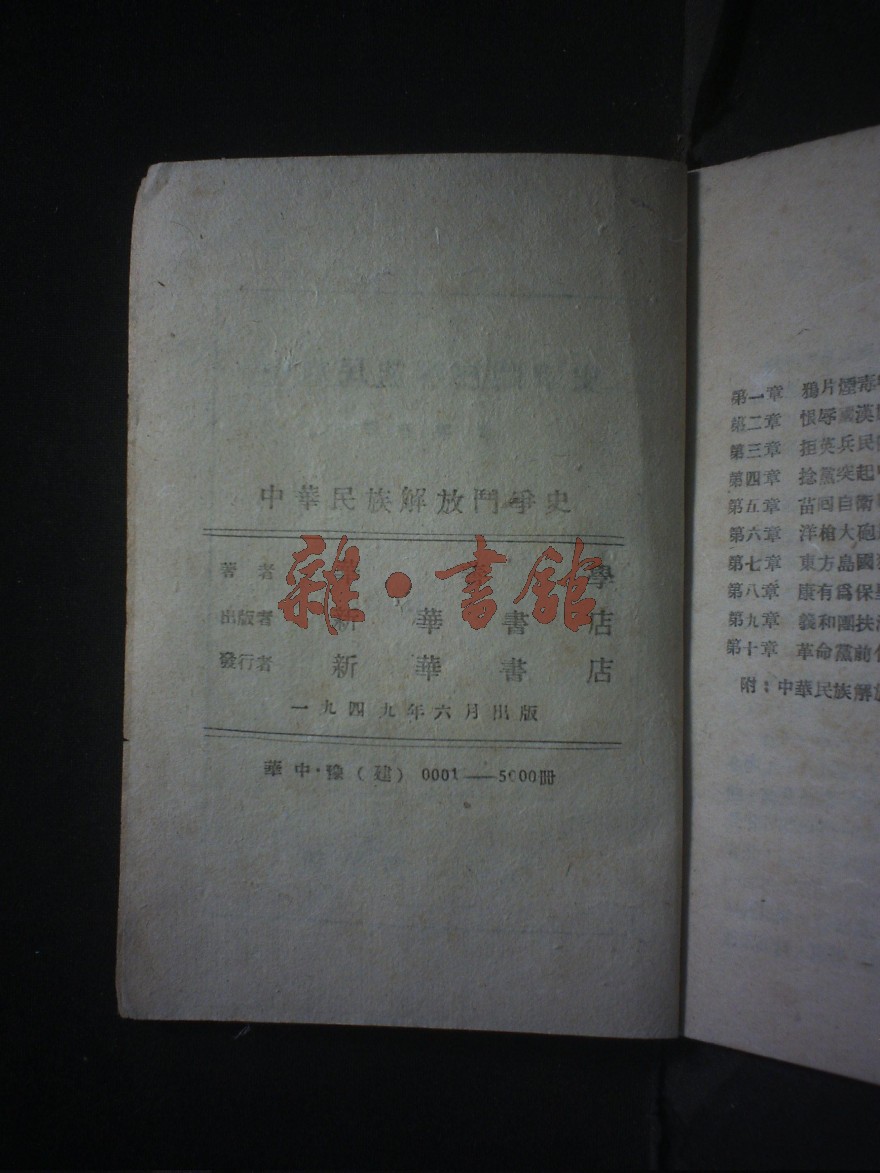 中華民族解放鬥爭史
著者 學
出版者 新華書店
發行者 新華書店
一九四九年六月出版
華中·豫(建) 0001——5000冊
雜·書館
第一章 鴉片煙毒
第二章 恨辱國漢
第三章 拒英兵民
第四章 捻黨突起
第五章 苗回自衛
第六章 洋槍大砲
第七章 東方島國
第八章 康有爲保
第九章 義和團扶
第十章 革命黨前
附:中華民族解放